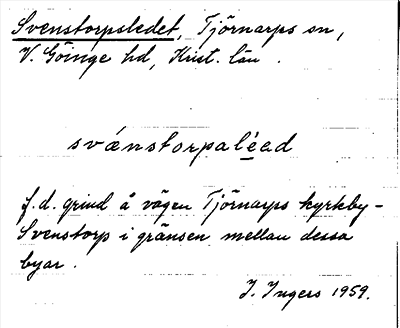 Svenstorpsledet, Tjörnarps sn,
V. Göinge hd, Krist. län.
svánstorpaléad
f.d. grind å vägen Tjörnarps kyrkby-
Svenstorp i gränsen mellan dessa
byar.
I. Ingers 1959.